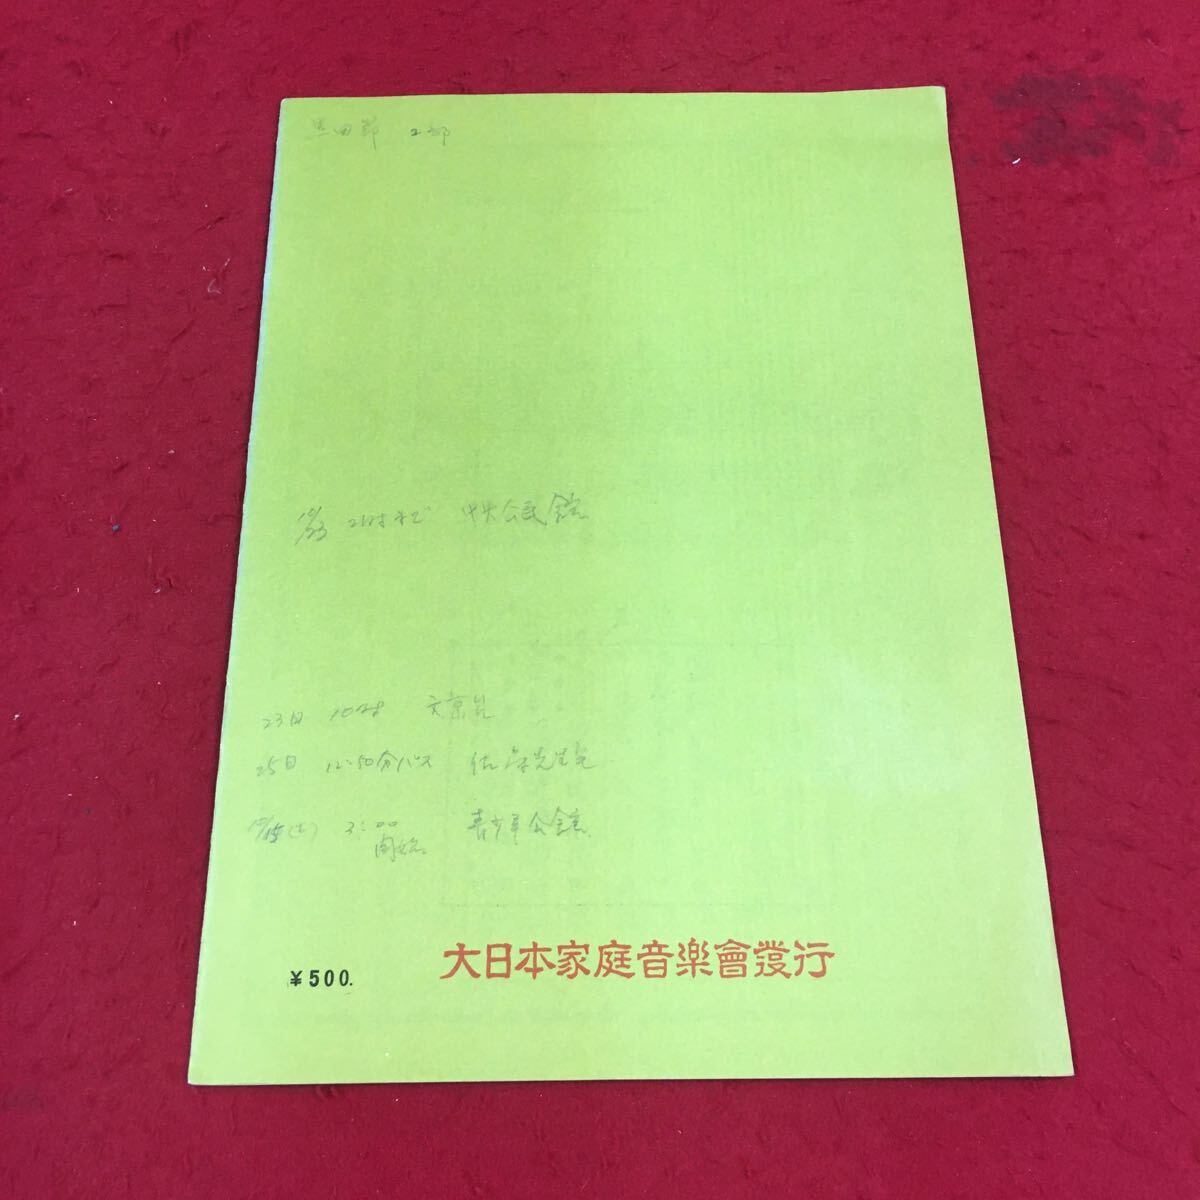 黒田節 2部
10/23 21時まで 中央公民館
23日 10時 文京
25日 12:50分バス 先生宅
3:00 青少年会館
開始
¥500.
大日本家庭音楽會發行